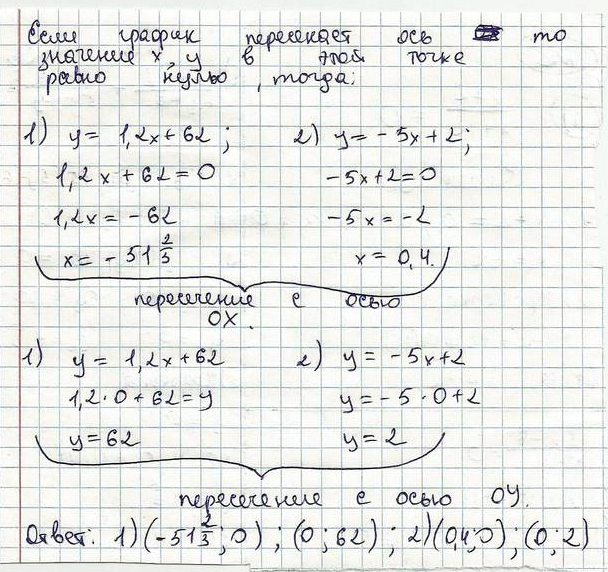 Если график пересекает ось то
значение x, y в этой точке
равно нулю, тогда:
1) y = 1,2x + 62; 2) y = -5x + 2;
1,2x + 62 = 0 -5x + 2 = 0
1,2x = -62 -5x = -2
x = -51 2/3 x = 0,4.
пересечение с осью
OX.
1) y = 1,2x + 62 2) y = -5x + 2
1,2 · 0 + 62 = y y = -5 · 0 + 2
y = 62 y = 2
пересечение с осью OY.
Ответ: 1) (-51 2/3; 0); (0; 62); 2) (0,4; 0); (0; 2)